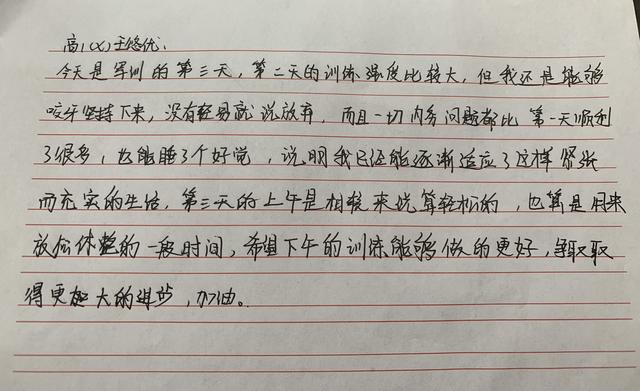 高1(X)王悠优.
今天是军训的第三天，第二天的训练强度比较大，但我还是能够
咬牙坚持下来，没有轻易就说放弃，而且一切内务问题都比第一天顺利
了很多，也能睡了个好觉，说明我已经能逐渐适应了这样紧张
而充实的生活，第三天的上午是相较来说算轻松的，也算是用来
放松休整的一段时间，希望下午的训练能够做的更好，争取取
得更加大的进步，加油。